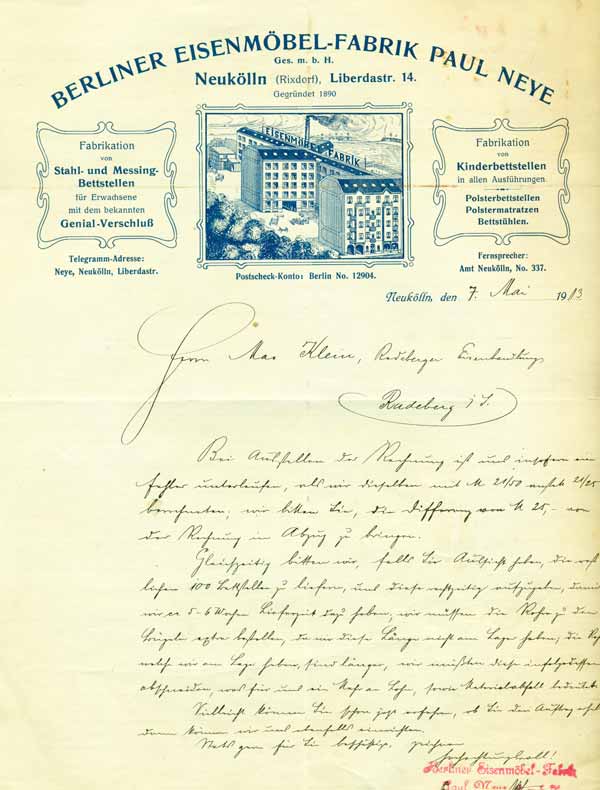 BERLINER EISENMÖBEL-FABRIK PAUL NEYE
Ges. m. b. H.
Neukölln (Rixdorf), Liberdastr. 14.
Gegründet 1890
Fabrikation
von
Stahl- und Messing-
Bettstellen
für Erwachsene
mit dem bekannten
Genial-Verschluß
Telegramm-Adresse:
Neye, Neukölln, Liberdastr.
EISENMÖBEL FABRIK
Postscheck-Konto: Berlin No. 12904.
Fabrikation
von
Kinderbettstellen
in allen Ausführungen
Polsterbettstellen
Polstermatratzen
Bettstühlen.
Fernsprecher:
Amt Neukölln, No. 337.
Neukölln, den 7. Mai 1913
Herrn Max Klein, Radeberger Eisenhandlung
Radeberg i/S.
Bei Aufstellen der Rechnung ist uns insofern ein
Fehler unterlaufen, als wir dieselben mit M 21/50 anstatt 21/25
berechneten; wir bitten Sie, die Differenz von M 25,- von
der Rechnung in Abzug zu bringen.
Gleichzeitig bitten wir, falls Sie Aussicht haben, die rest
lichen 100 Bettstellen zu liefern, uns diese rechtzeitig aufzugeben, damit
wir ca 5-6 Wochen Lieferzeit dazu haben, wir müssen die Rohre zu den
Bügeln extra bestellen, da wir diese Länge nicht am Lager haben, die
welche wir am Lager haben, sind länger, wir müßten diese infolgedessen
abschneiden, was für uns ein Mehr an Lohn, sowie Materialabfall bedeutet
Vielleicht können Sie schon jetzt ersehen, ob Sie den Auftrag
dann können wir uns ebenfalls einrichten.
Stets gern für Sie beschäftigt, zeichnen
Hochachtungsvoll!
Berliner Eisenmöbel-Fabrik
Paul Neye